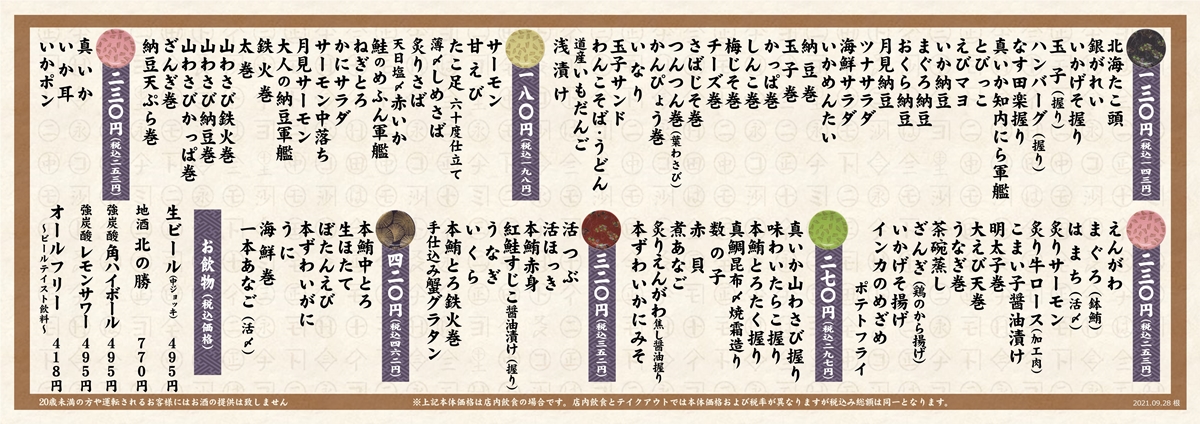 一三〇円（税込一四三円）
北海たこ頭
銀がれい
いかげそ握り
玉子（握り）
ハンバーグ（握り）
なす田楽握り
真いか知内にら軍艦
とびっこ
えびマヨ
いか納豆
まぐろ納豆
おくら納豆
月見納豆
ツナサラダ
海鮮サラダ
いかめんたい
納豆巻
玉子巻
かっぱ巻
しんこ巻
梅じそ巻
チーズ巻
さばじそ巻
つんつん巻（葉わさび）
かんぴょう巻
いなり
玉子サンド
わんこそば・うどん
道産いもだんご
浅漬け
一八〇円（税込一九八円）
サーモン
甘えび
たこ足 六十度仕立て
薄〆しめさば
炙りさば
天日塩〆赤いか
鮭のめふん軍艦
ねぎとろ
かにサラダ
サーモン中落ち
月見サーモン
大人の納豆軍艦
鉄火巻
太巻
山わさび鉄火巻
山わさび納豆巻
山わさびかっぱ巻
ざんぎ巻
納豆天ぷら巻
二三〇円（税込二五三円）
真いか
いか耳
いかポン
二三〇円（税込二五三円）
えんがわ
まぐろ（鉢鮪）
はまち（活〆）
炙りサーモン
炙り牛ロース（加工肉）
こまい子醤油漬け
明太子巻
えび天巻
うなぎ巻
茶碗蒸し
ざんぎ（鶏のから揚げ）
いかげそ揚げ
インカのめざめ
ポテトフライ
二七〇円（税込二九七円）
真いか山わさび握り
味わいたらこ握り
本鮪とろたく握り
真鯛昆布〆焼霜造り
数の子
赤貝
煮あなご
炙りえんがわ焦し醤油握り
本ずわいかにみそ
三二〇円（税込三五二円）
活つぶ
活ほっき
本鮪赤身
紅鮭すじこ醤油漬け（握り）
うなぎ
いくら
本鮪とろ鉄火巻
手仕込み蟹グラタン
四二〇円（税込四六二円）
本鮪中とろ
生ほたて
ぼたんえび
本ずわいがに
うに
海鮮巻
一本あなご（活〆）
お飲物（税込価格）
生ビール（中ジョッキ） 495円
地酒 北の勝 770円
強炭酸 角ハイボール 495円
強炭酸 レモンサワー 495円
オールフリー 418円
～ビールテイスト飲料～
20歳未満の方や運転されるお客様にはお酒の提供は致しません
※上記本体価格は店内飲食の場合です。店内飲食とテイクアウトでは本体価格および税率が異なりますが税込み総額は同一となります。
2021.09.28 根